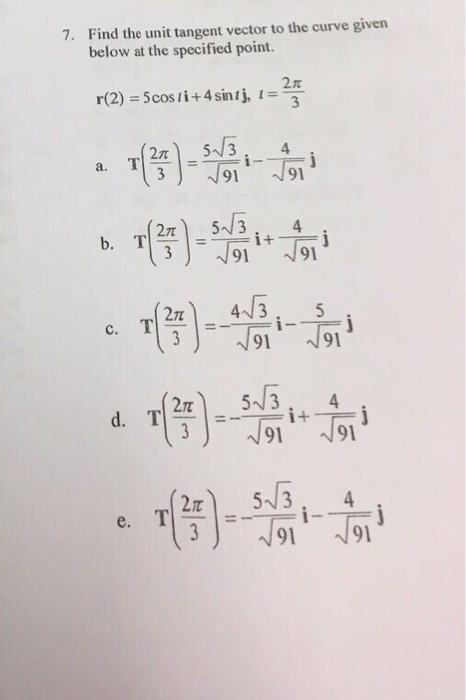 7. Find the unit tangent vector to the curve given
below at the specified point.
r(2) = 5 cos t i + 4 sin t j, t = 2π/3
a. T(2π/3) = 5√3/√91 i − 4/√91 j
b. T(2π/3) = 5√3/√91 i + 4/√91 j
c. T(2π/3) = −4√3/√91 i − 5/√91 j
d. T(2π/3) = −5√3/√91 i + 4/√91 j
e. T(2π/3) = −5√3/√91 i − 4/√91 j